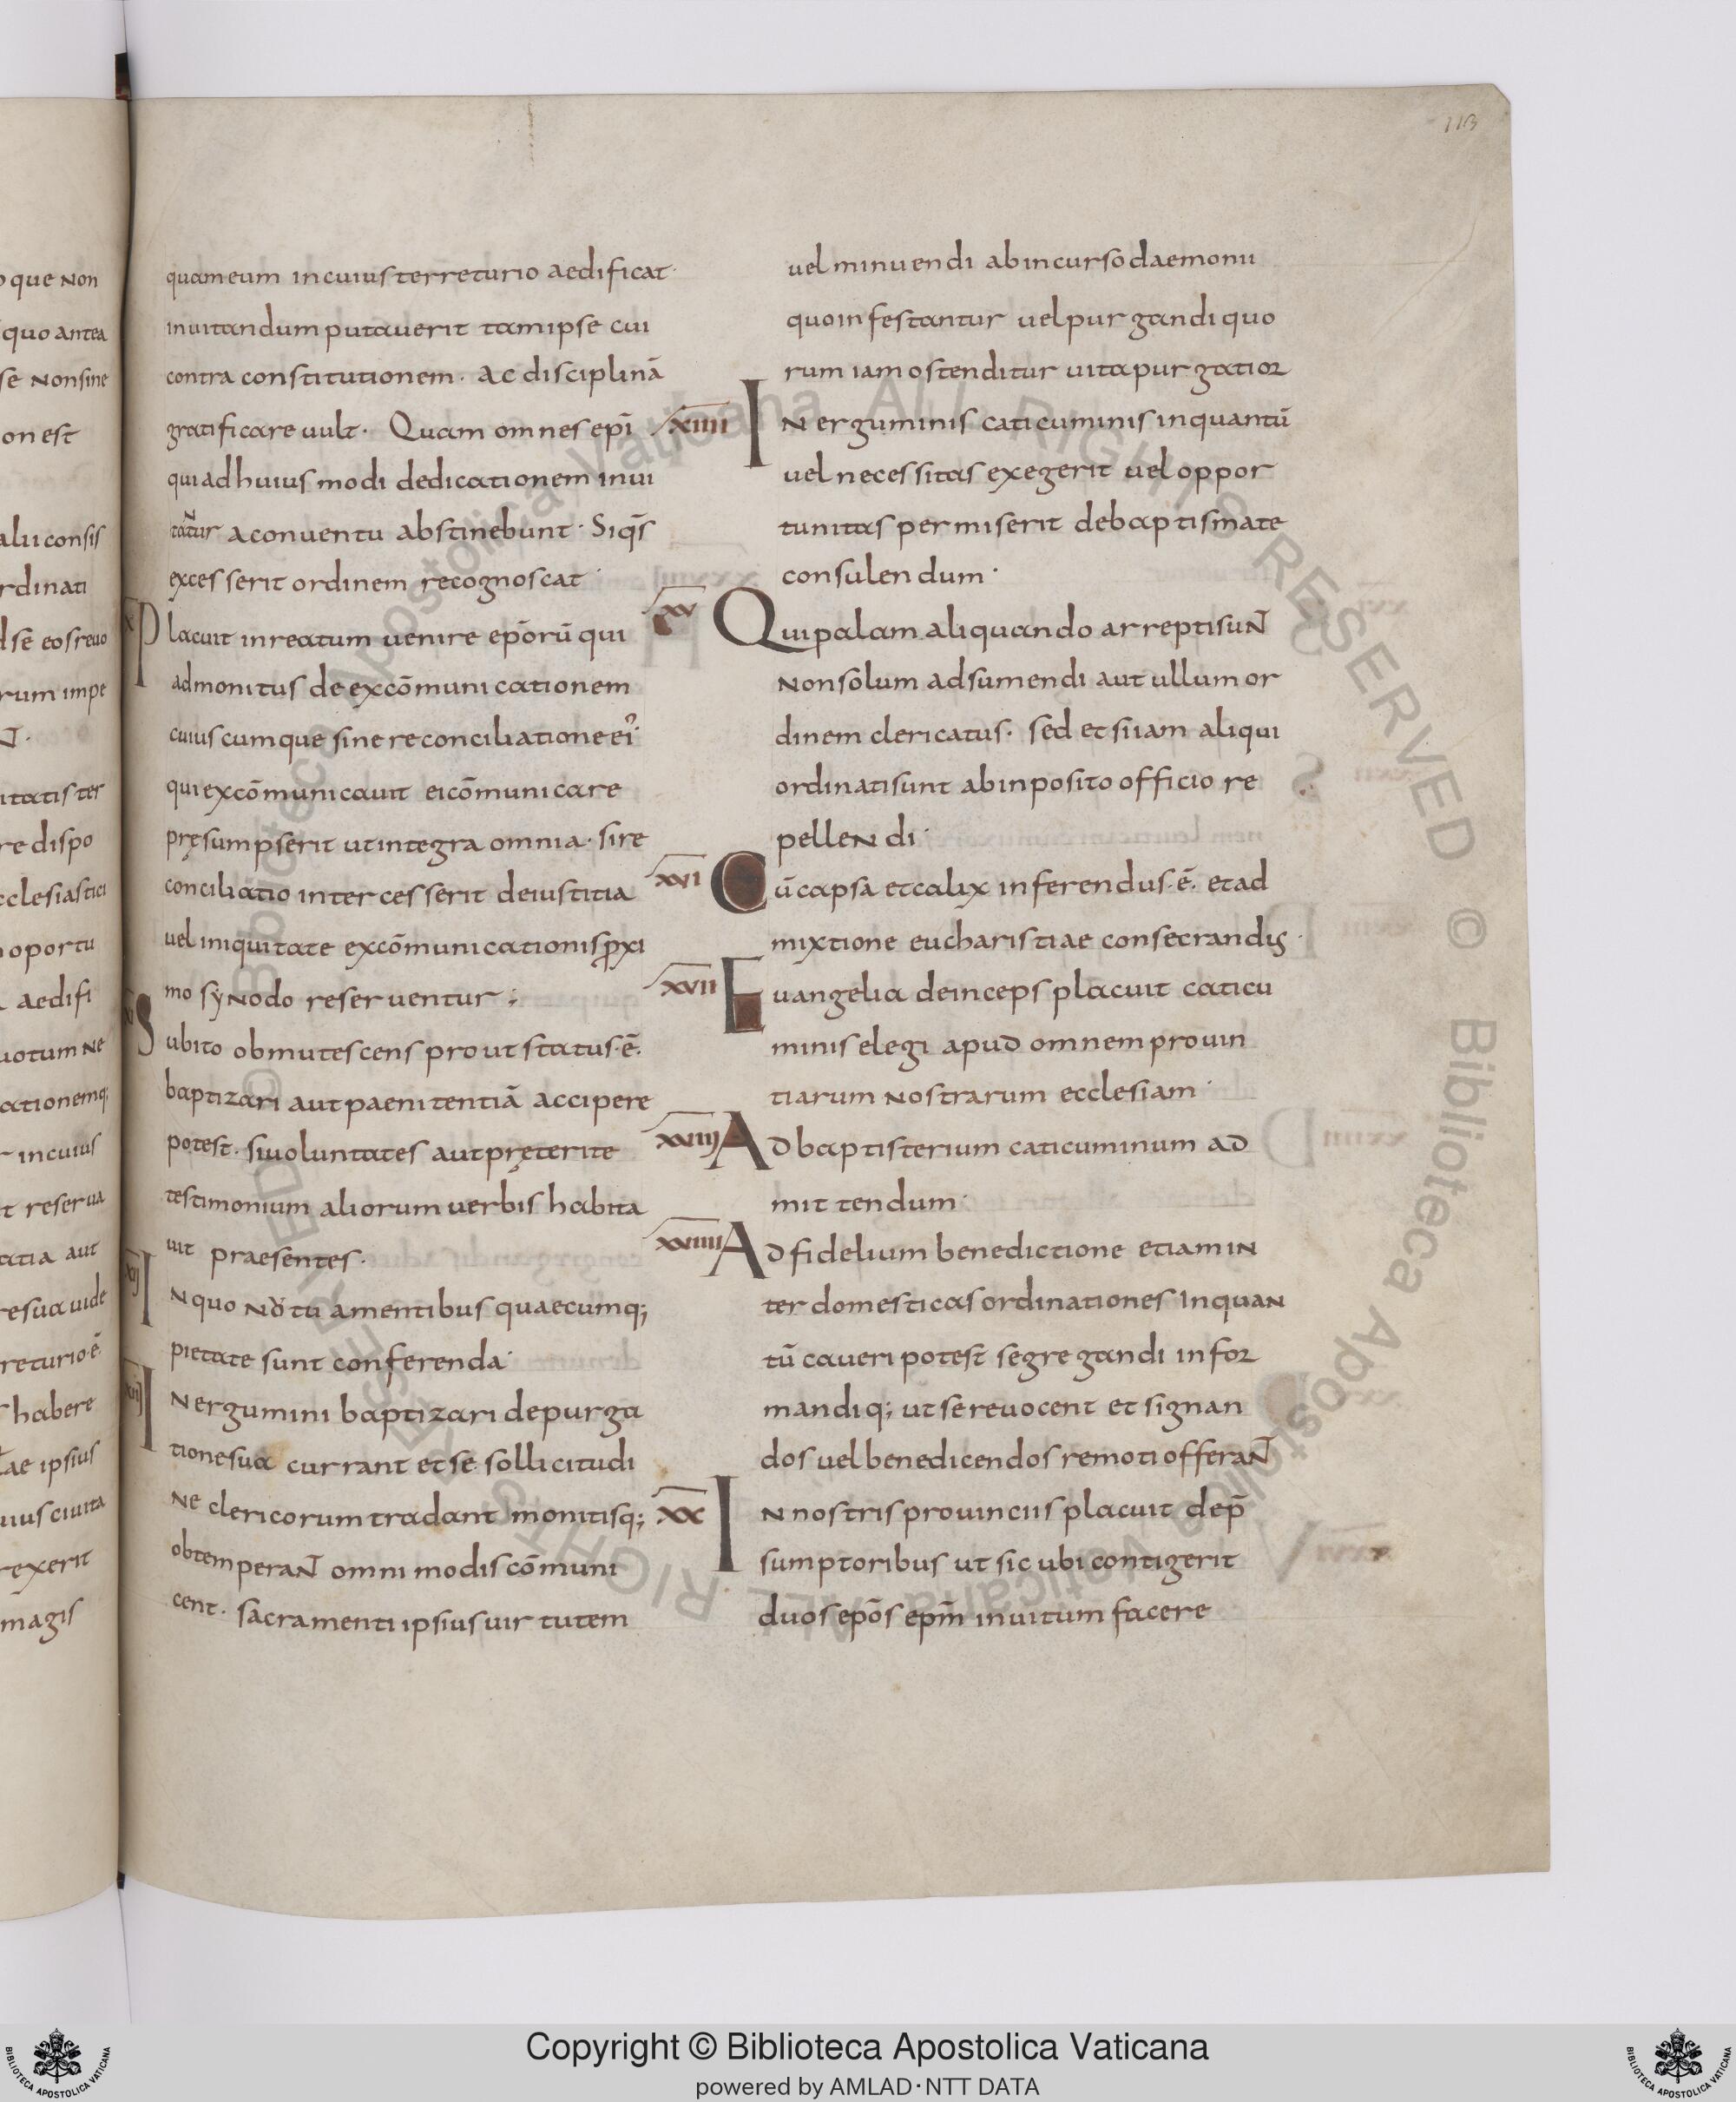 113
quameum incuiusterreturio aedificat·
inuitandum putauerit tamipse cui
contra constitutionem· ac disciplinā
gratificare uult· Quam omnes epī
qui adhuius modi dedicationem inui
tantur aconuentu abstinebunt· Siq̄s
excesserit ordinem recognoscat·
x Placuit inreatum uenire ep̄orū qui
admonitus de excōmunicationem
cuiuscumque sine reconciliatione ei᾽·
qui excōmunicauit ei cōmunicare
pręsumpserit ut integra omnia· si re
conciliatio intercesserit deiustitia
uel iniquitate excōmunicationis ꝓxi
mo sẏnodo reseruentur;
Subito obmutescens prout status·ē·
baptizari aut paenitentiā accipere
potest· si uoluntates aut pręterite
testimonium aliorum uerbis habita
uit praesentes·
xii In quo nō tu amentibus quaecumq;
pietate sunt conferenda·
xiii Inergumini baptizari de purga
tione sua currant et se sollicitudi
ne clericorum tradant monitisq;
obtemperaN̄ omni modis cōmuni
cent· sacramenti ipsius uirtutem
uel minuendi ab incurso daemonii
quo infestantur uel purgandi quo
rum iam ostenditur uita purgatior
xiiii Inerguminis caticuminis inquantū
uel necessitas exegerit uel oppor
tunitas permiserit de baptismate
consulendum·
xv Qui palam aliquando arrepti suN̄
Non solum adsumendi aut ullum or
dinem clericatus· sed et si iam aliqui
ordinati sunt ab inposito officio re
pellendi·
xvi Cū capsa et calix inferendus·ē· et ad
mixtione eucharistiae consecrandis·
xvii Euangelia deinceps placuit caticu
minis elegi apud omnem prouin
tiarum nostrarum ecclesiam·
xviii Ad baptisterium caticuminum ad
mittendum·
xviiii Ad fidelium benedictione etiam in
ter domesticas ordinationes inquan
tū caueri potest segregandi infor
mandiq; ut se reuocent et signan
dos uel benedicendos remoti offeraN̄
xx In nostris prouinciis placuit de p̄
sumptoribus ut sicubi contigerit
duos ep̄os ep̄m inuitum facere
Copyright © Biblioteca Apostolica Vaticana
powered by AMLAD·NTT DATA